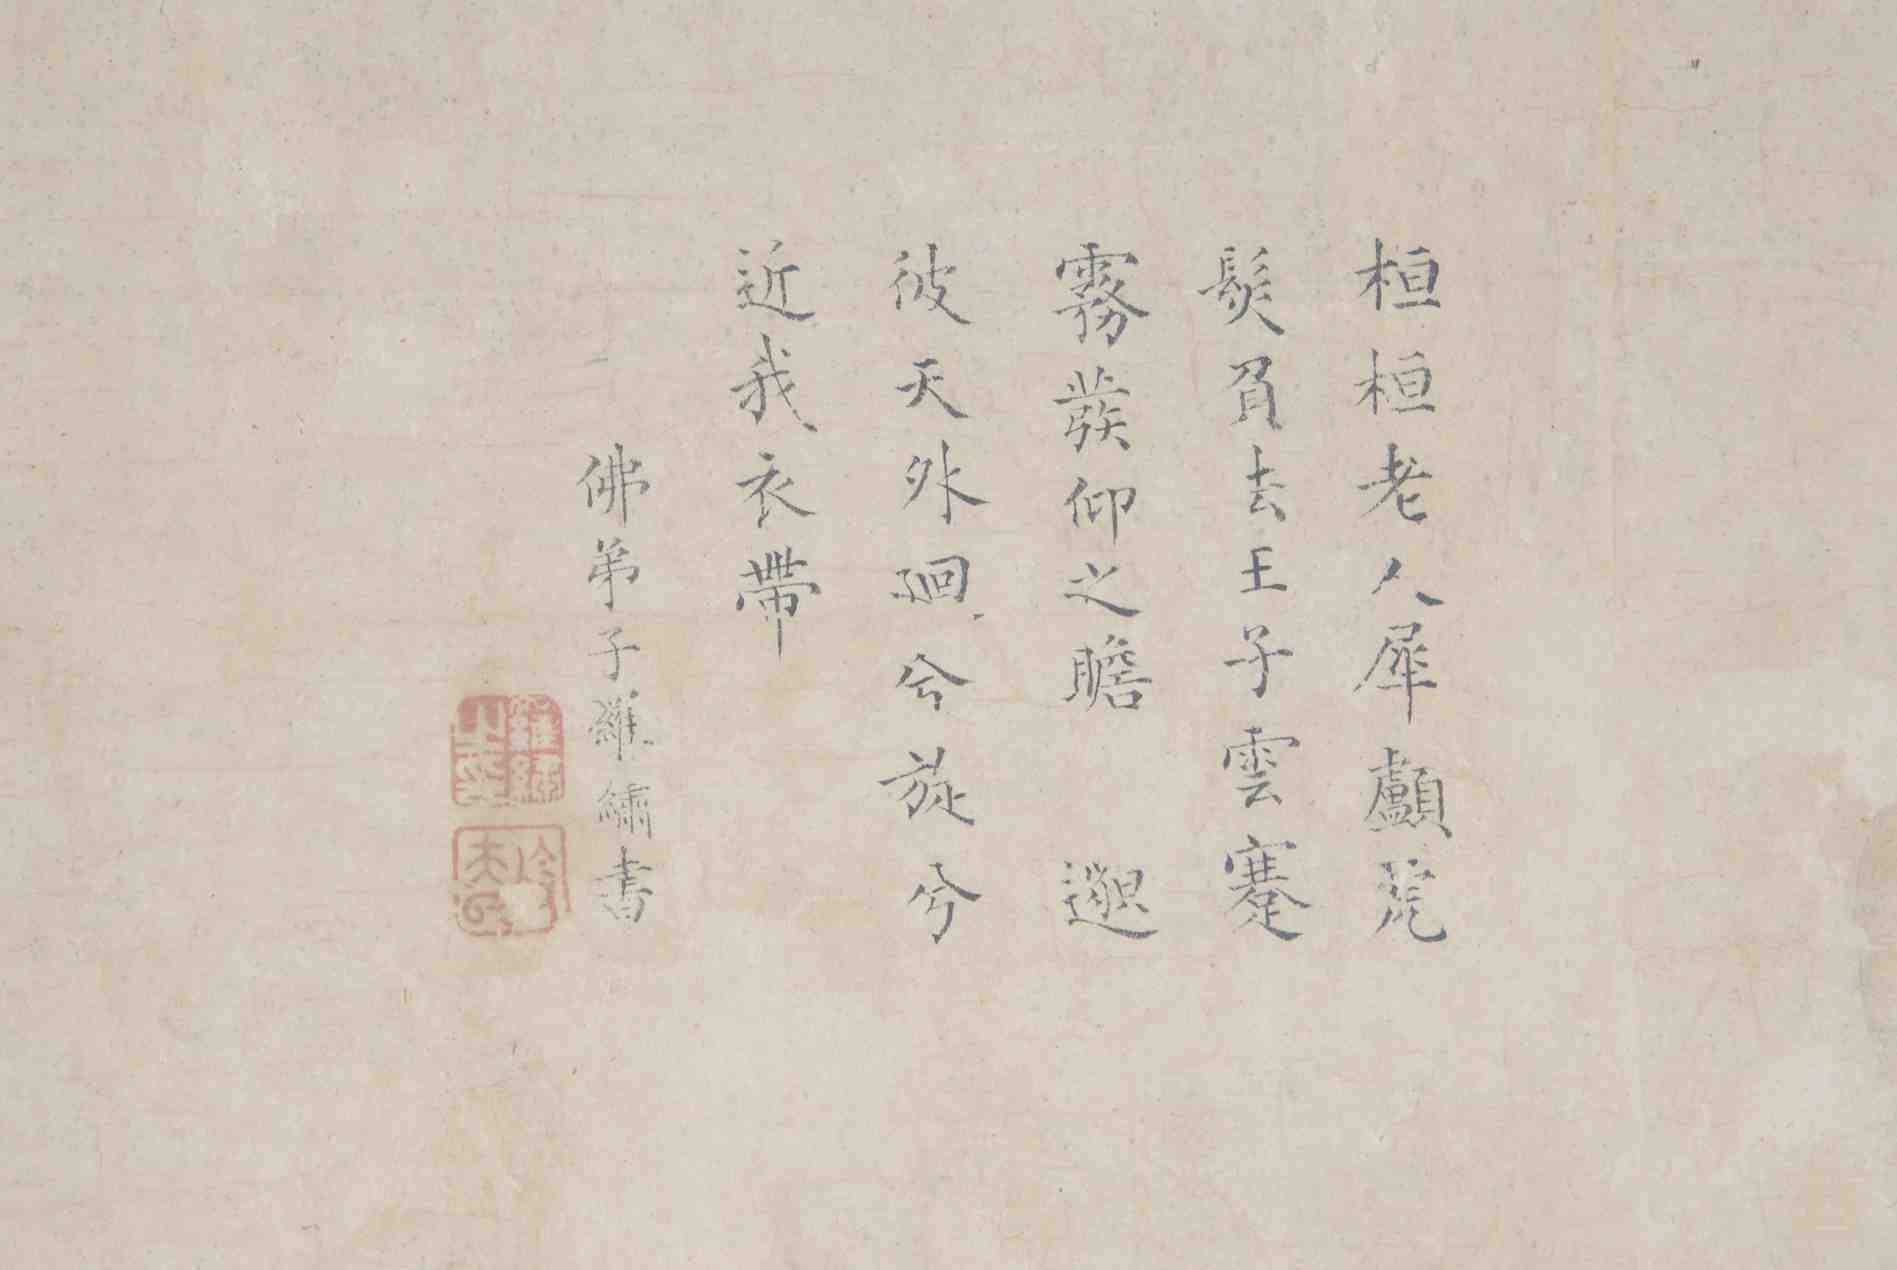 桓桓老人犀顱尨
髮負去王子雲蹇
霧發仰之瞻
彼天外迴兮旋兮
近我衣帶
佛弟子羅繡書